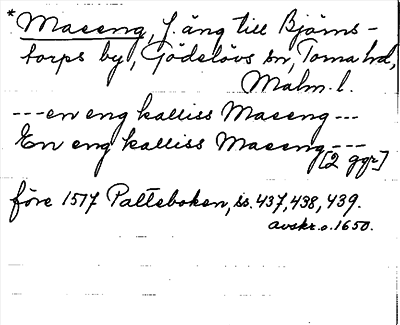 * Maseng, f. äng till Björns-
torps by, Gödelövs sn, Torna hd,
Malm. l.
---en eng kalliss Maseng---
En eng kalliss Maseng---
[2 ggr]
före 1517 Palteboken, ss. 437, 438, 439.
avskr. o. 1650.